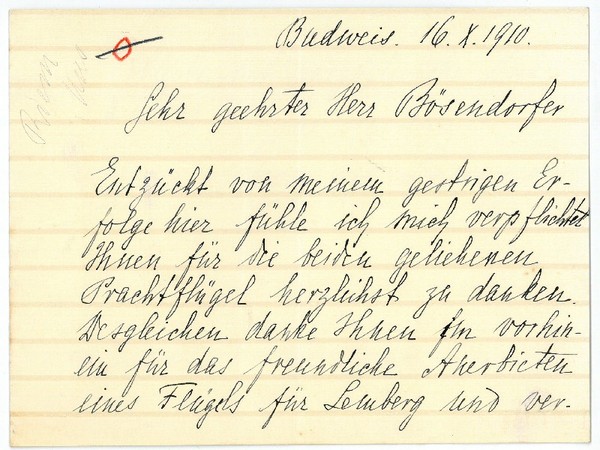 Budweis. 16. X. 1910.
Sehr geehrter Herr Bösendorfer
Entzückt von meinem gestrigen Er-
folge hier fühle ich mich verpflichtet
Ihnen für die beiden geliehenen
Prachtflügel herzlichst zu danken.
Desgleichen danke Ihnen im vorhin-
ein für das freundliche Anerbieten
eines Flügels für Lemberg und ver-